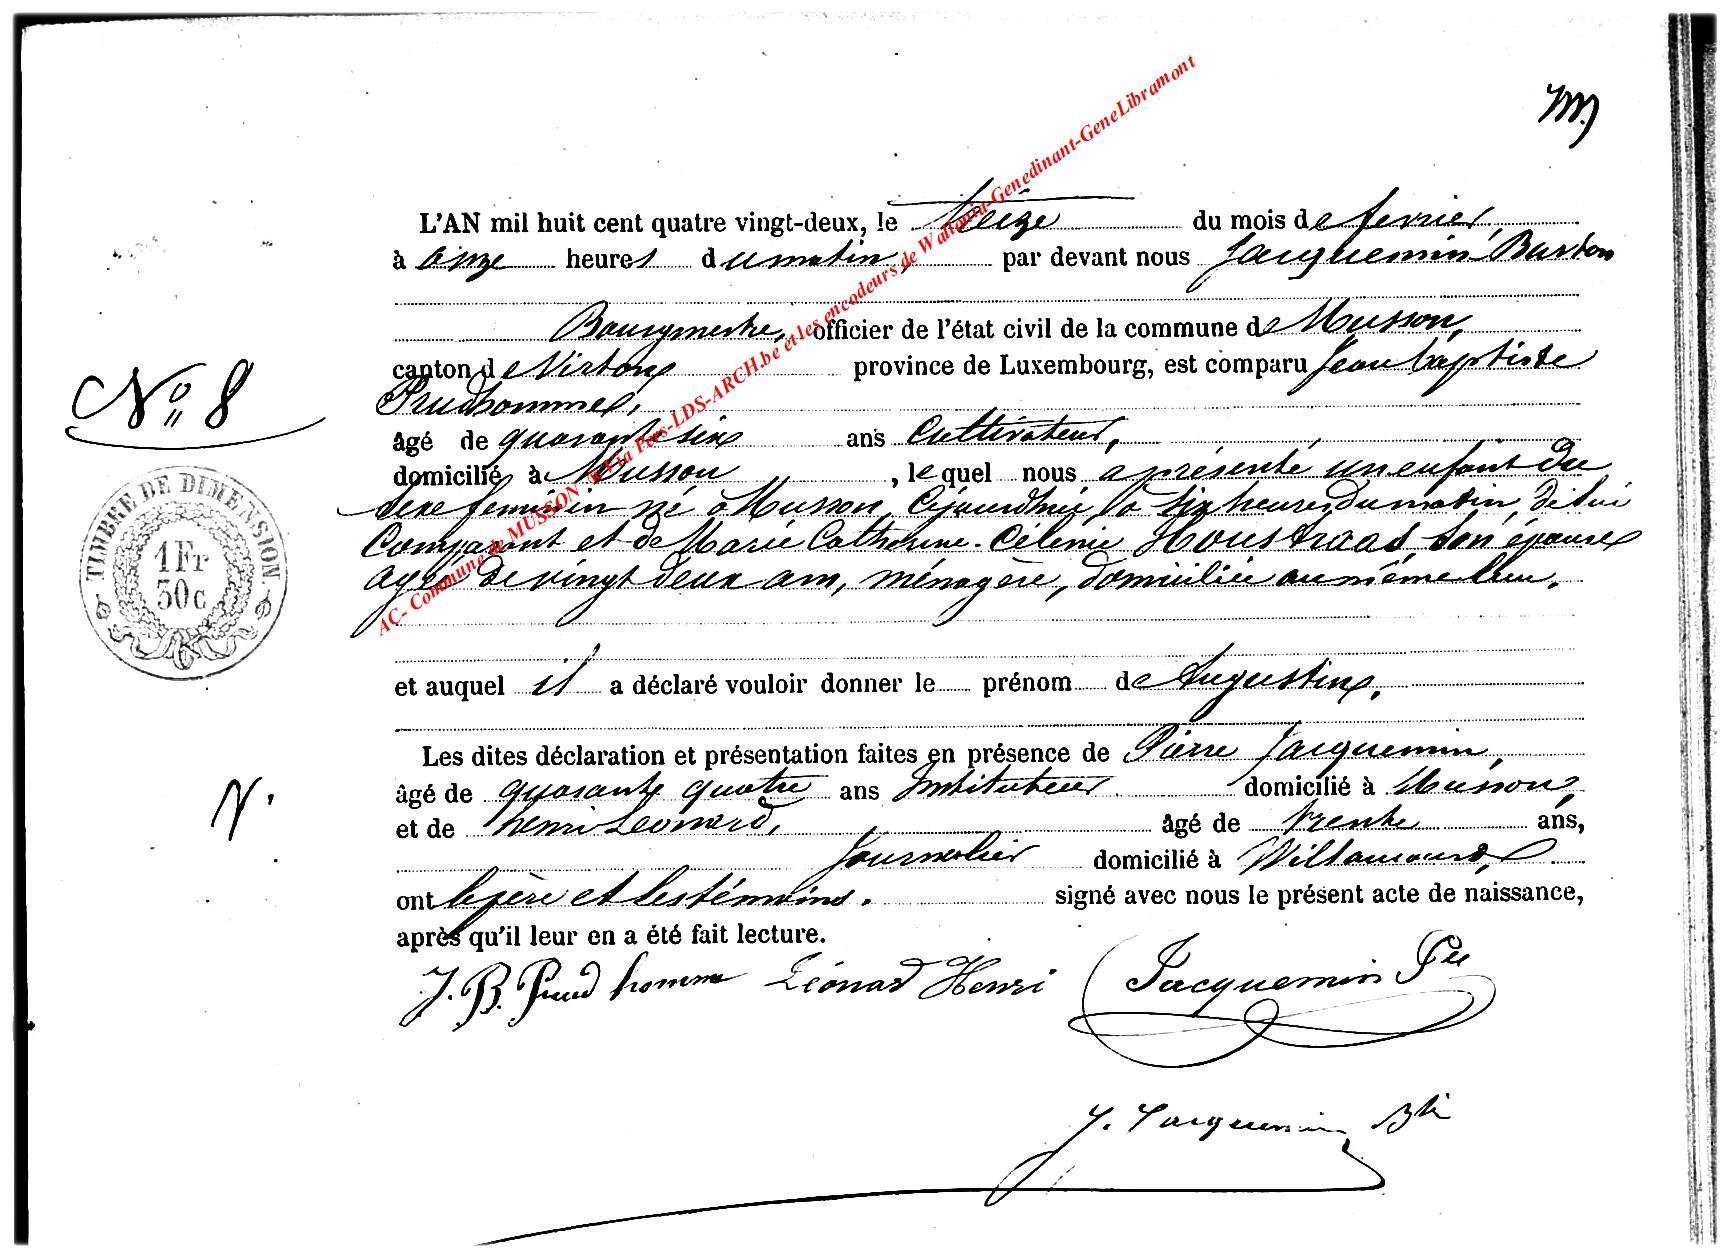 M.
L'AN mil huit cent quatre vingt-deux, le treize du mois de fevrier,
à onze heures du matin, par devant nous Jacquemin
Bourgmestre, officier de l'état civil de la commune de Musson,
canton de Virton province de Luxembourg, est comparu Jean baptiste
Prudhomme,
âgé de quarante six ans Cultivateur,
domicilié à Musson, lequel nous a présenté un enfant du
sexe feminin né à Musson, cejourdhui, à six heures du matin, de lui
Comparant et de Marie Catherine-Célinie Houstraas, son épouse
agée de vingt deux ans, ménagère, domiciliée au même lieu,
et auquel il a déclaré vouloir donner le prénom de Augustine,
Les dites déclaration et présentation faites en présence de Pierre Jacquemin,
âgé de quarante quatre ans Instituteur domicilié à Musson,
et de henri Leonard, âgé de trente ans,
Journalier domicilié à Willancourt,
ont le père et les témoins. signé avec nous le présent acte de naissance,
après qu'il leur en a été fait lecture.
J. B. Prud homme Léonard Henri Jacquemin Pre
J. Jacquemin
No 8
TIMBRE DE DIMENSION.
1 Fr
30 c
N.
AC- Commune de MUSSON via Pers-LDS-ARCH.be et les encodeurs de Wallonia-Genedinant-GeneLibramont